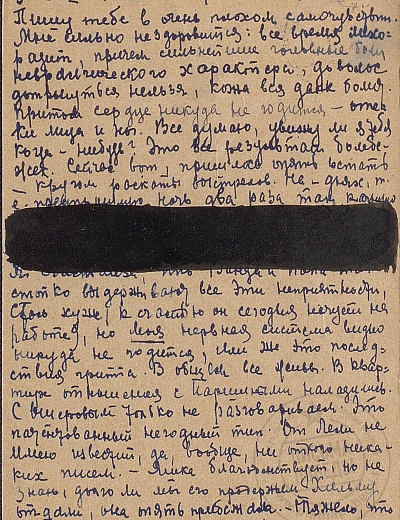 Пишу тебе в очень плохом самочувствии.
Мне сильно нездоровится: все время лихо-
радит, причем сильнейшие головные боли
невралгического характера, до волос
дотронуться нельзя, кожа вся даже болит.
Притом сердце никуда не годится – оте-
ки лица и ног. Все думаю, увижу ли я тебя
когда-нибудь? Это все результат бомбе-
жек. Сейчас вот, пришлось опять встать
– кругом раскаты выстрелов. На-днях, т.
е. прошлую ночь два раза там
стойко выдерживают все эти неприятности,
к счастью он сегодня ночует на
работе, но моя нервная система видно
никуда не годится, или же это послед-
ствия гриппа. В общем все живы. В квар-
тире отношения с наладились.
С только не разговариваем. Это
негодный тип. От Лели не
имею известий, да, вообще, ни от кого ника-
ких писем. – благодушествует, но не
знаю, долго ли мы его продержим.
отдали, она опять приезжала. – Тяжело, что